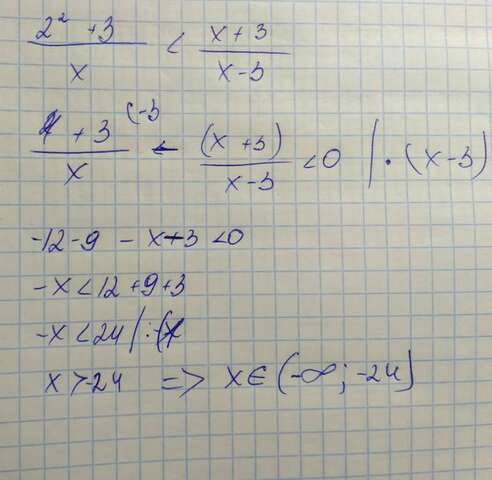 (2² + 3)/x < (x + 3)/(x - 3)
(4 + 3)/x (-3 - (x + 3)/(x - 3) < 0 | · (x - 3)
-12 - 9 - x + 3 < 0
-x < 12 + 9 + 3
-x < 24 | : (
x > -24 => x ∈ (-∞; -24]